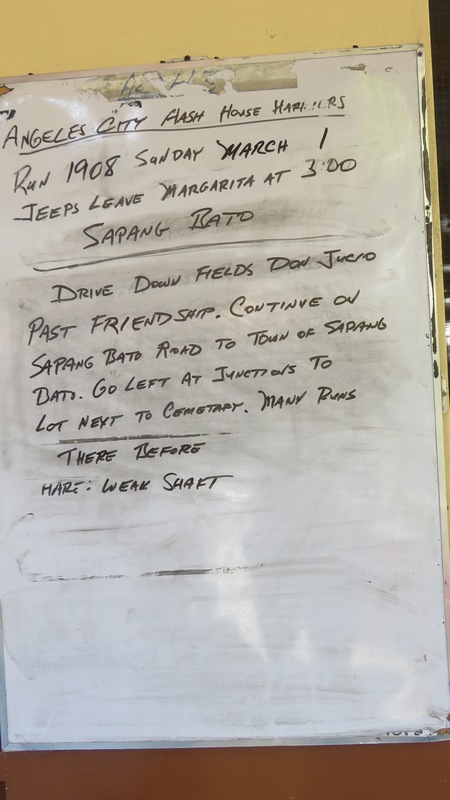 ANGELES CITY HASH HOUSE HARRIERS
RUN 1908 SUNDAY MARCH 1
JEEPS LEAVE MARGARITA AT 3:00
SAPANG BATO
DRIVE DOWN FIELDS DON JUICO
PAST FRIENDSHIP. CONTINUE ON
SAPANG BATO ROAD TO TOWN OF SAPANG
BATO. GO LEFT AT JUNCTIONS TO
LOT NEXT TO CEMETARY. MANY RUNS
THERE BEFORE
HARE: WEAK SHAFT